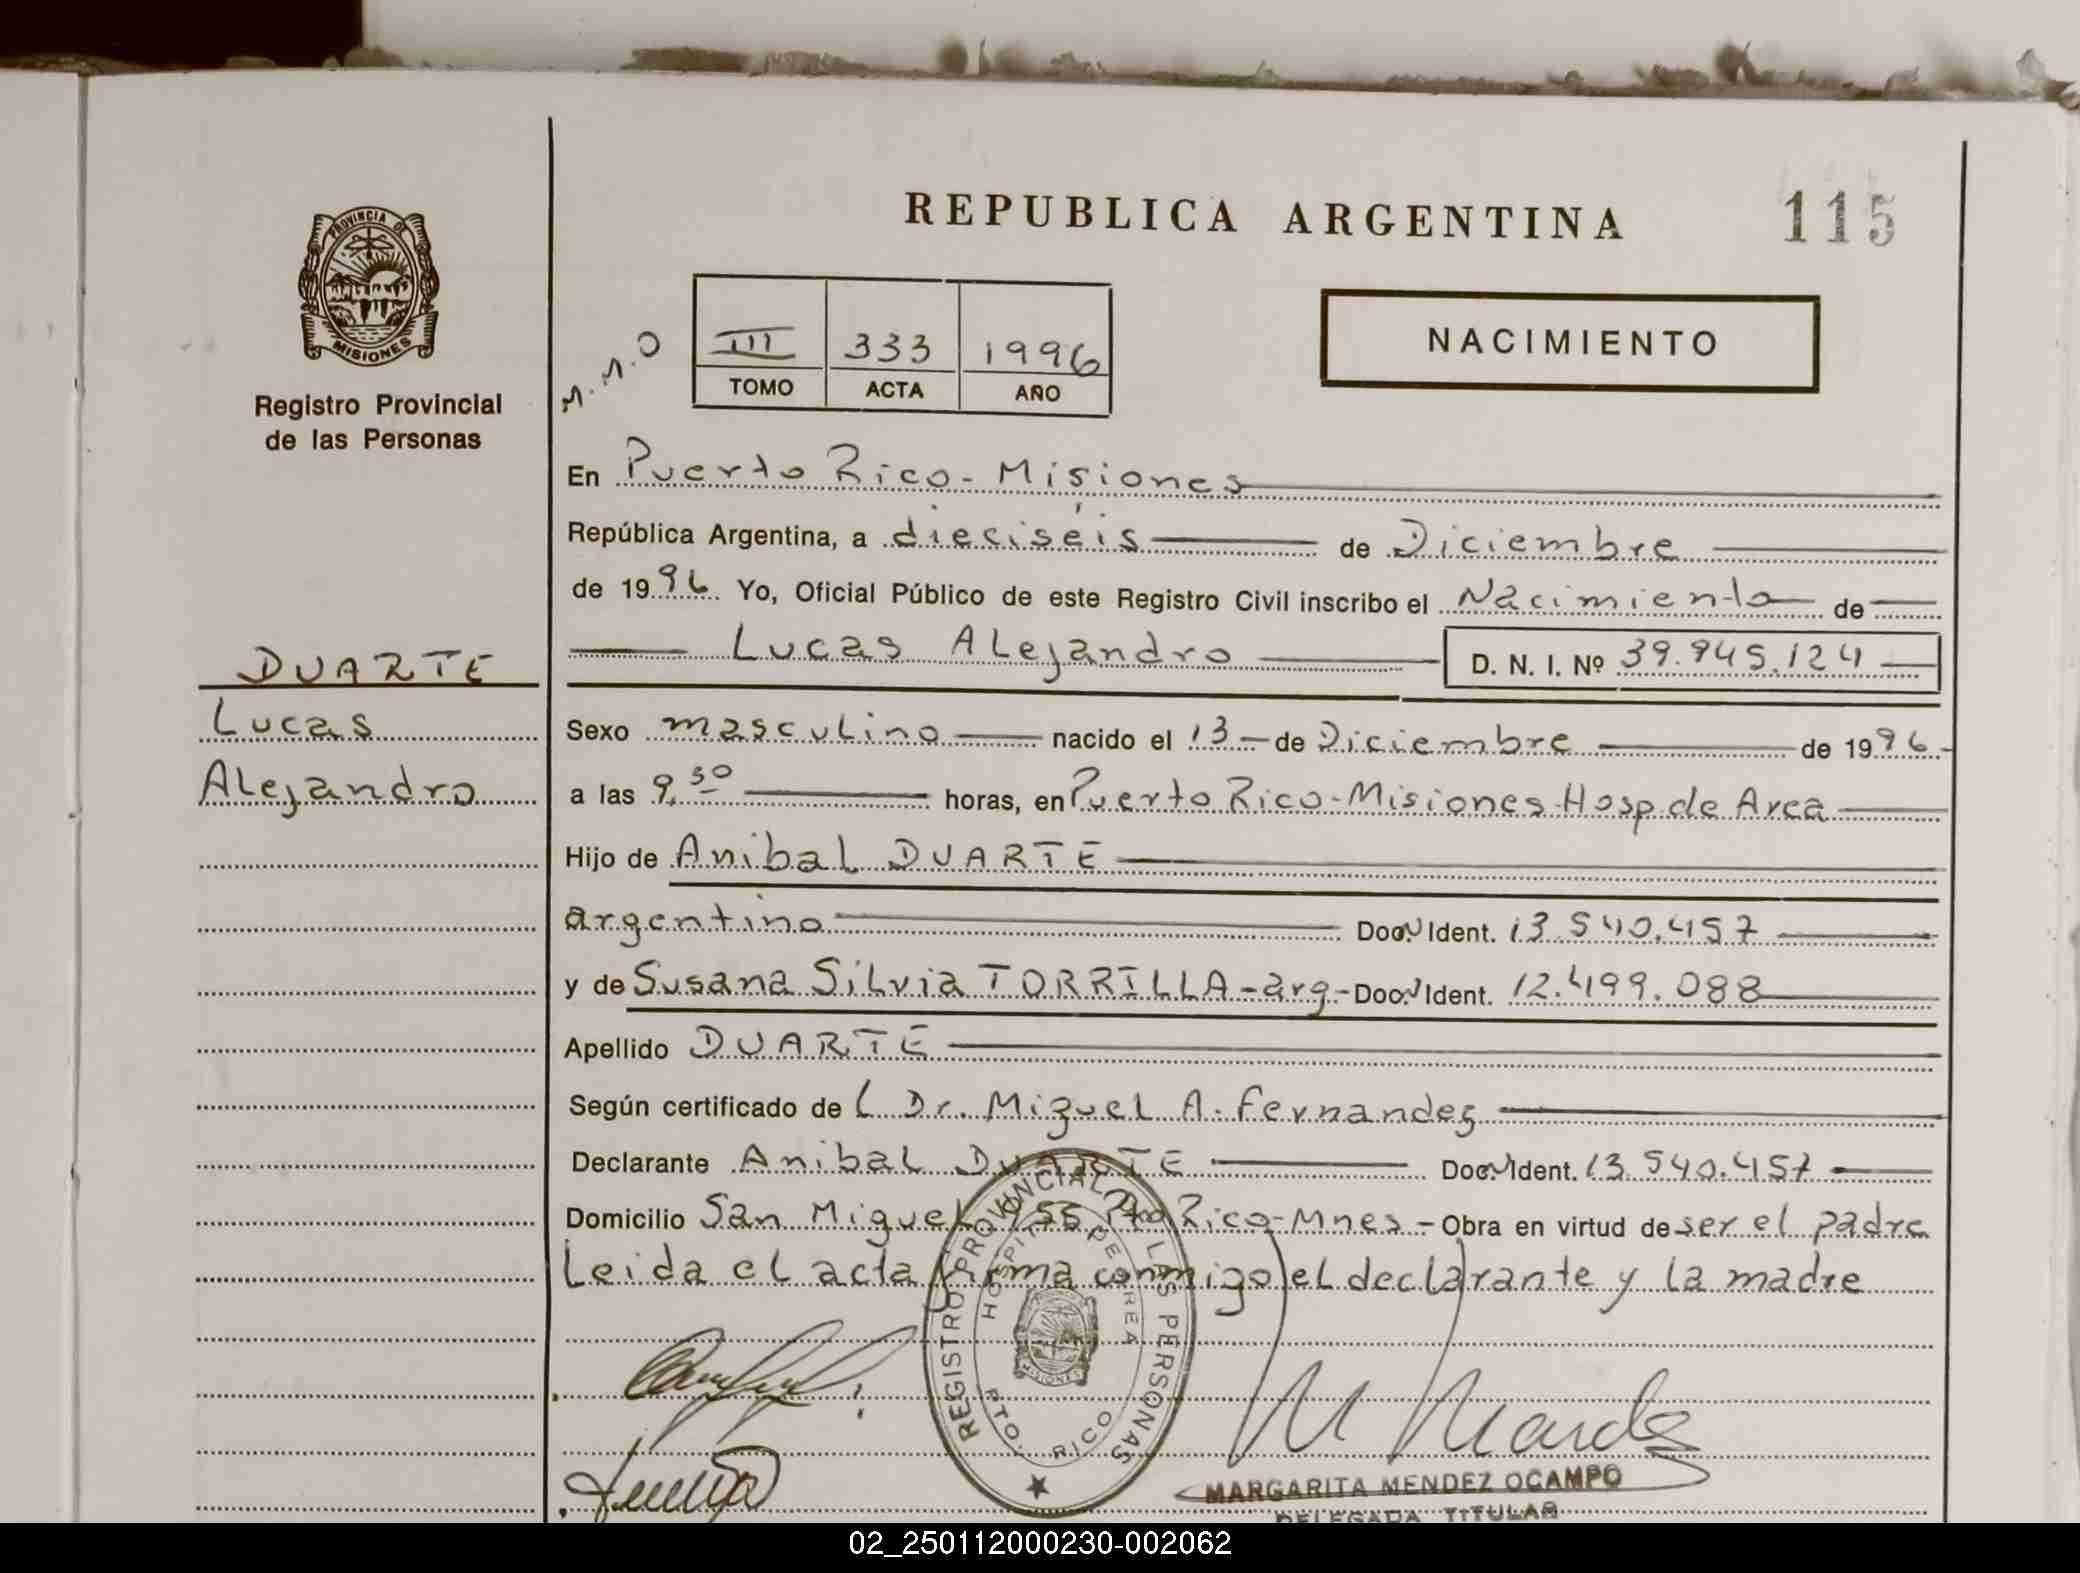 REPUBLICA ARGENTINA
115
PROVINCIA DE
MISIONES
Registro Provincial
de las Personas
M.M.O
III 333 1996
TOMO ACTA AÑO
NACIMIENTO
En Puerto Rico - Misiones
República Argentina, a dieciséis de Diciembre
de 1996 Yo, Oficial Público de este Registro Civil inscribo el Nacimiento de
Lucas Alejandro D. N. I. Nº 39.945.124
DUARTE
Lucas
Alejandro
Sexo masculino nacido el 13 de Diciembre de 1996
a las 9,30 horas, en Puerto Rico - Misiones Hosp. de Area
Hijo de Anibal DUARTE
argentino Doc. Ident. 13.540.457
y de Susana Silvia TORRILLA - arg - Doc. Ident. 12.499.088
Apellido DUARTE
Según certificado del Dr. Miguel A. Fernandez
Declarante Anibal DUARTE Doc. Ident. 13.540.457
Domicilio San Miguel Pto Rico - Mnes - Obra en virtud de ser el padre
Leida el acta firma conmigo el declarante y la madre
REGISTRO PROVINCIAL DE LAS PERSONAS
HOSPITAL DE AREA
MISIONES
PTO. RICO
MARGARITA MENDEZ OCAMPO
DELEGADA TITULAR
02_250112000230-002062